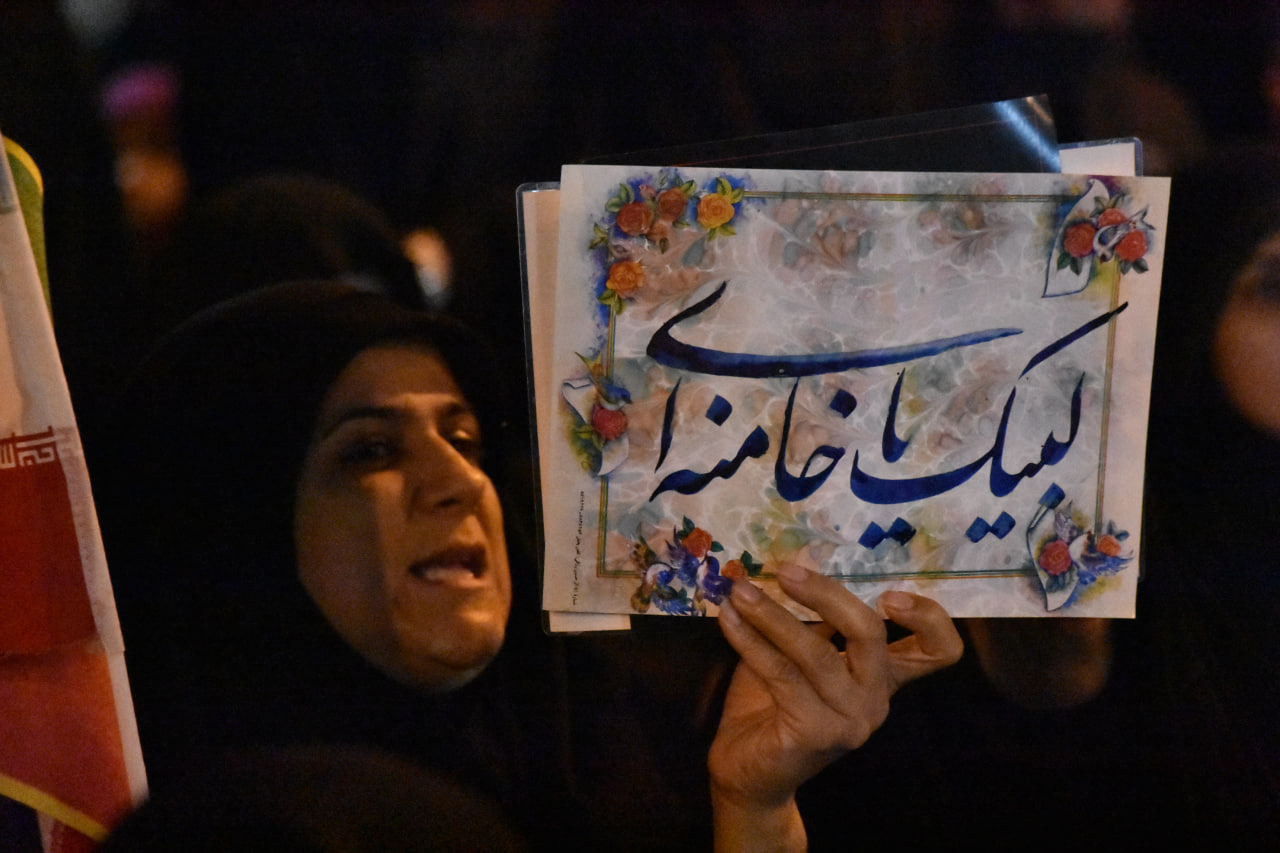 لبیک یا خامنه ای